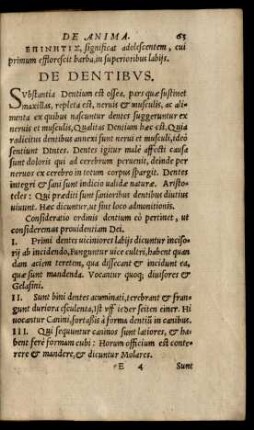 DE ANIMA. 63
ΕΠΙΝΗΤΙΣ, significat adolescentem, cui
primum efflorescit barba, in superioribus labijs.
DE DENTIBVS.
SVbstantia Dentium est ossea, pars quæ sustinet
maxillas, repleta est, neruis & musculis, ac ali-
munta ex quibus nascuntur dentes suggeruntur ex
neruis et musculis, Qualitas Dentium hæc est. Quia
radicitus dentibus annexi sunt nerui et musculi, ideò
sentiunt Dentes. Dentes igitur malè affecti causa
sunt doloris qui ad cerebrum peruenit, deinde per
neruos ex cerebro in totum corpus spargit. Dentes
integri & sani sunt indicio validæ naturæ. Aristo-
teles: Qui præditi sunt sanioribus dentibus diutius
viuunt. Hæc dicuntur, ut sint loco admonitionis.
Consideratio ordinis dentium eò pertinet, ut
consideremus prouidentiam Dei.
I. Primi dentes viciniores labijs dicuntur inciso-
rij ab incidendo, Funguntur vice cultri, habent quan
dam aciem teretem, qua dissecant & incidunt ea,
quæ sunt mandenda. Vocantur quoq; diuisores &
Gelasini.
II. Sunt bini dentes acuminati, terebrant & fran-
gunt duriora esculenta, Ist vff ieder seiten einer. Hi
vocantur Canini, fortassis à forma dentis in canibus.
III. Qui sequuntur caninos sunt latiores, & ha-
bent ferè formam cubi: Horum officium est conte-
rere & mandere, & dicuntur Molares.
E 4 Sunt